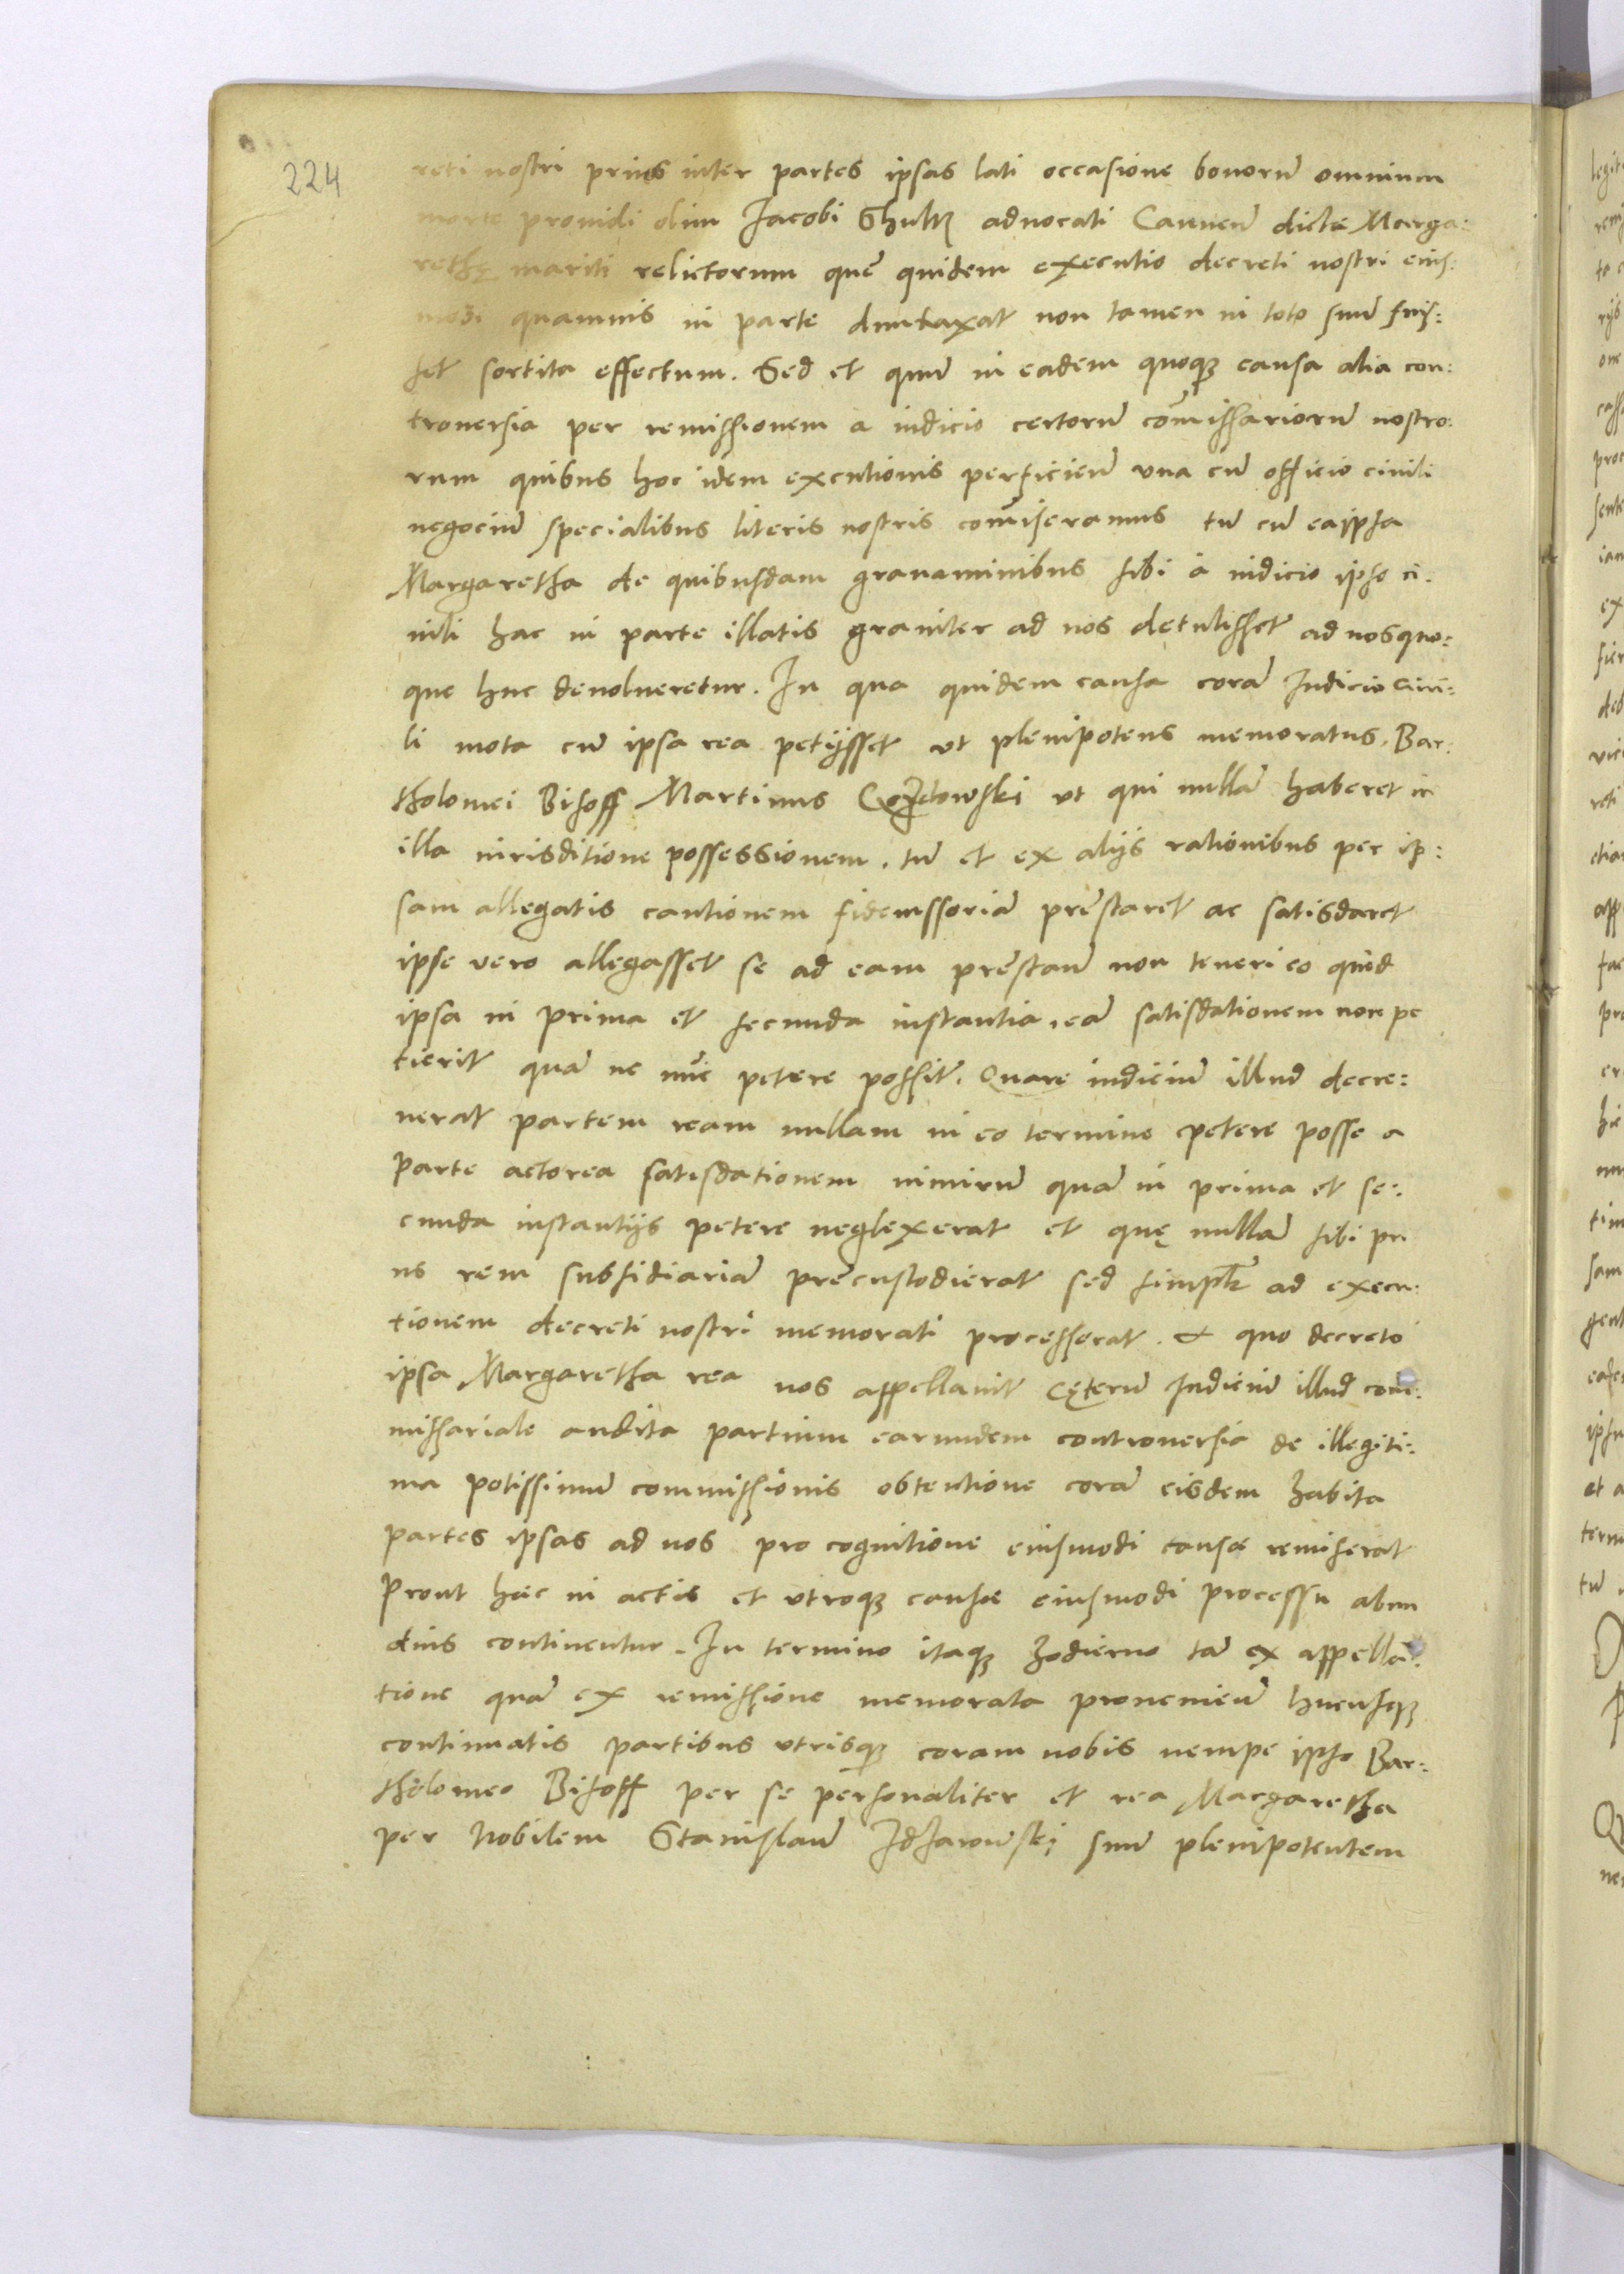 224
reti nostri prius inter partes ipsas lati occasione bonorū omnium
morte prouidi olim Jacobi Shultz aduocati Cauneñ dictę Marga:
rethę mariti relictorum quę̄ quidem executio decreti nostri eius:
modi quamuis in parte duntaxat non tamen in toto suū fuis:
set sortita effectum. Sed et quū in eadem quoqꝫ causa alia con:
trouersia per remissionem a iudicio certorū com̄issariorū nostro:
rum quibus hoc idem executionis perficieñ vna cū officio ciuili
negociū specialibus literis nostris com̄iseramus tū cū ea ipsa
Margaretha de quibusdam grauaminibus sibi à iudicio ipso ci:
uili hac in parte illatis grauiter ad nos detulisset ad nos quo:
que huc deuolueretur. In qua quidem causa corā Judicio Ciui:
li mota cū ipsa rea petijsset vt plenipotens memoratus, Bar:
tholomei Bisoff Martinus vt qui nullā haberet in
illa iurisditione possessionem, tū et ex alijs rationibus per ip:
sam allegatis cautionem fideiussoriā prēstaret ac satisdaret
ipse vero allegasset se ad eam prēstañ non teneri eo quòd
ipsa in prima et secunda instantia, eā satisdationem non pe
tierit quā ne nūc petere possit. Quare iudiciū illud decre:
uerat partem ream nullam in eo termino petere posse a
parte actorea satisdationem nimirū quā in prima et se:
cunda instantijs petere neglexerat et quę nullā sibi pri
us rem subsidiariā prēcustodierat sed simplr̄ ad execu:
tionem decreti nostri memorati processerat. à quo decreto
ipsa Margaretha rea nos appellauit Cęterū Judiciū illud com:
missariale audita partium earundem controuersia de illegiti:
ma potissimū commissionis obtentione corā eisdem habita
partes ipsas ad nos pro cognitione eiusmodi causæ remiserat
Prout hæc in actis et vtroqꝫ causæ eiusmodi processu abun
dius continentur. In termino itaqꝫ hodierno tā ex appella:
tione quā ex remissione memorata prouenieñ hucusqꝫ
continuatis partibus vtrisqꝫ coram nobis nempe ipso Bar:
tholomeo Bisoff per se personaliter et rea Margaretha
per Nobilem Stanislaū suū plenipotentem